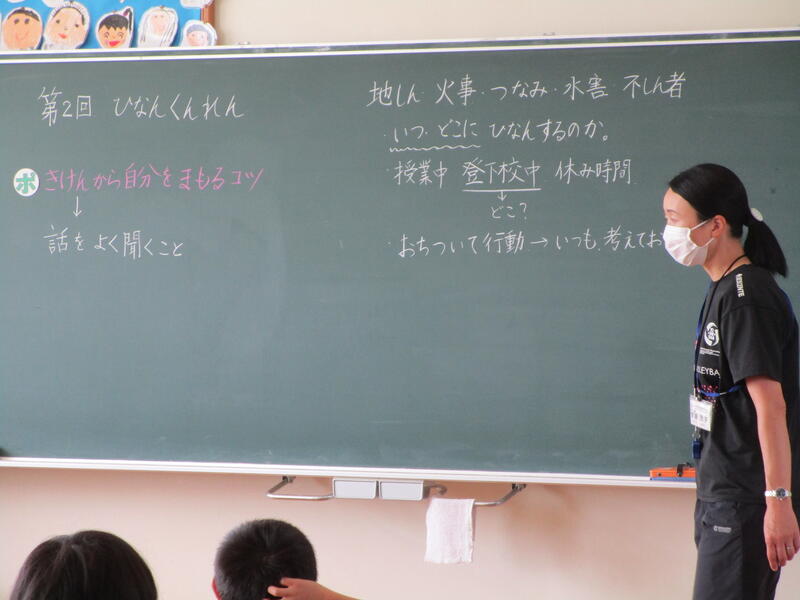 第2回 ひなんくんれん
ポ きけんから自分をまもるコツ
↓
話をよく聞くこと
地しん・火事・つなみ・水害 不しん者
・いつ・どこに ひなんするのか。
・授業中 登下校中 休み時間
↓
どこ?
・おちついて行動→いつも、考えてお